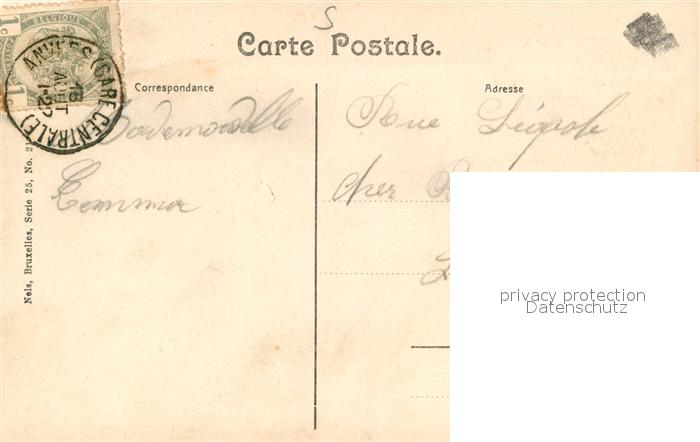 S
BELGIQUE
1c
1c
ANVERS (GARE CENTRALE)
18
AOUT
Carte Postale.
Correspondance
Adresse
Mademoiselle
Rue Léopold
cher
Nels, Bruxelles, Serie 25, No. 21
privacy protection
Datenschutz